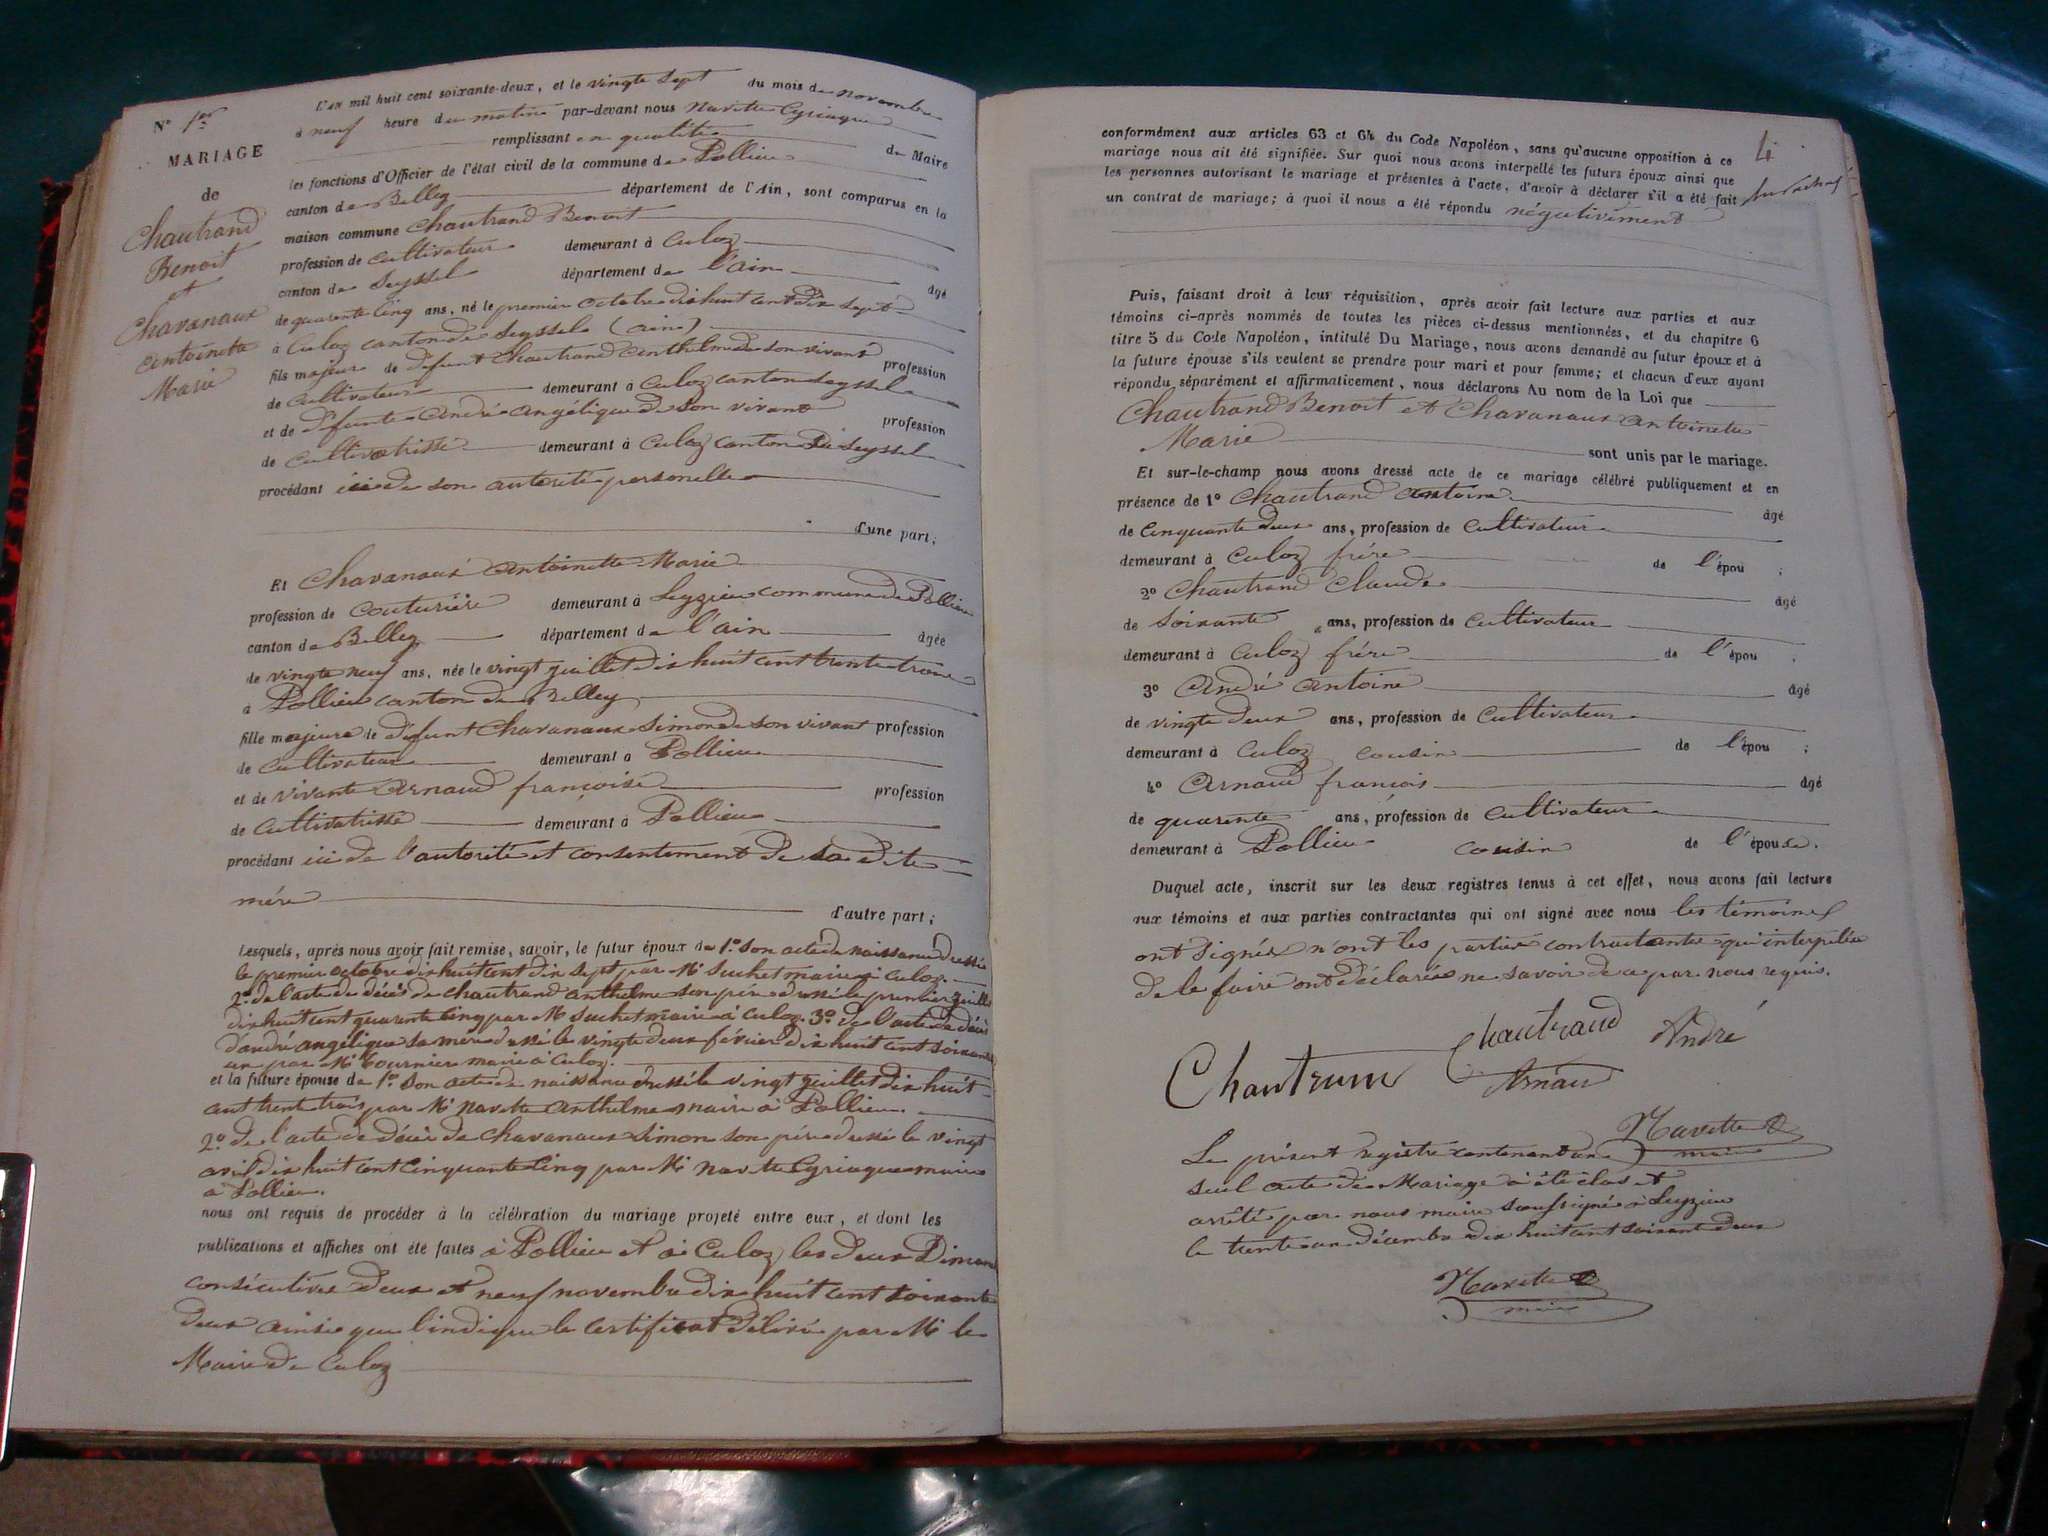 N° 1er
MARIAGE
de
Chautrand
Benoit
et
Chavanaux
antoinette
Marie
L'an mil huit cent soixante-deux, et le vingte sept du mois de novembre
à neuf heure du matin par-devant nous navette Cyriaque
remplissant en qualité de Maire
les fonctions d'Officier de l'état civil de la commune de Pollieu
canton de Belley département de l'Ain, sont comparus en la
maison commune Chautrand Benoit
profession de cultivateur demeurant à Culoz
canton de Seyssel département de l'ain âgé
de quarente cinq ans, né le premier octobre dix huit cent dix sept
à Culoz canton de Seyssel (ain)
fils majeur de défunt Chautrand anthelme de son vivant profession
de cultivateur demeurant à Culoz canton Seyssel
et de défunte andré angélique de son vivant profession
de cultivatrisse demeurant à Culoz canton de Seyssel
procédant ici de son autorité personelle
d'une part;
Et Chavanaux antoinette Marie
profession de couturière demeurant à Leyzieu commune de Pollieu
canton de Belley département de l'ain âgée
de vingte neuf ans, née le vingt juillet dix huit cent trente trois
à Pollieu canton de Belley
fille majeure de défunt Chavanaux Simon de son vivant profession
de cultivateur demeurant à Pollieu
et de vivante arnaud françoise profession
de cultivatrisse demeurant à Pollieu
procédant ici de l'autorité et consentement de sa dite
mére
d'autre part;
Lesquels, après nous avoir fait remise, savoir, le futur époux de 1° son acte de naissance dressé
le premier octobre dix huit cent dix sept par Mr Suchet maire à Culoz.
2° de l'acte de décès de chautrand anthelme son pére dressé le premier juillet
dix huit cent quarente cinq par Mr Suchet maire à Culoz. 3° de l'acte de décès
d'andré angélique sa mère dressé le vingte deux février dix huit cent soixante
un par Mr Tournier maire à Culoz.
et la future épouse de 1° son acte de naissance dressé le vingt juillet dix huit
cent trente trois par Mr navette anthelme maire à Pollieu.
2° de l'acte de décès de chavanaux Simon son pére dressé le vingt
avril dix huit cent cinquante cinq par Mr navette Cyriaque maire
à Pollieu.
nous ont requis de procéder à la célébration du mariage projeté entre eux, et dont les
publications et affiches ont été faites à Pollieu et à Culoz les deux Diman
consécutives deux et neuf novembre dix huit cent soixante
deux ainsi que l'indique le certificat délivré par Mr le
Maire de Culoz
4
conformément aux articles 63 et 64 du Code Napoléon, sans qu'aucune opposition à ce
mariage nous ait été signifiée. Sur quoi nous avons interpellé les futurs époux ainsi que
les personnes autorisant le mariage et présentes à l'acte, d'avoir à déclarer s'il a été fait
un contrat de mariage; à quoi il nous a été répondu négativement
Puis, faisant droit à leur réquisition, après avoir fait lecture aux parties et aux
témoins ci-après nommés de toutes les pièces ci-dessus mentionnées, et du chapitre 6
titre 5 du Code Napoléon, intitulé Du Mariage, nous avons demandé au futur époux et à
la future épouse s'ils veulent se prendre pour mari et pour femme; et chacun d'eux ayant
répondu séparément et affirmativement, nous déclarons Au nom de la Loi que
Chautrand Benoit et Chavanaux antoinette
Marie sont unis par le mariage.
Et sur-le-champ nous avons dressé acte de ce mariage célébré publiquement et en
présence de 1° Chautrand antoine âgé
de cinquante deux ans, profession de cultivateur
demeurant à Culoz frére de l'épou ;
2° Chautrand Claude âgé
de soixante ans, profession de cultivateur
demeurant à Culoz frére de l'épou ;
3° André antoine âgé
de vingte deux ans, profession de cultivateur
demeurant à Culoz cousin de l'épou ;
4° Arnaud françois âgé
de quarente ans, profession de cultivateur
demeurant à Pollieu cousin de l'épouse.
Duquel acte, inscrit sur les deux registres tenus à cet effet, nous avons fait lecture
aux témoins et aux parties contractantes qui ont signé avec nous les témoins
ont signés n'ont les parties contractantes qui interpelée
de le faire ont déclarés ne savoir de ce par nous requis.
Chautrand André
Chautrum Arnau
Navette
maire
Le présent registre contenant un
seul acte de Mariage à été clos et
arrêté par nous maire soussigné à Leyzieu
le trente un décembre dix huit cent soixant deux
Navette
maire